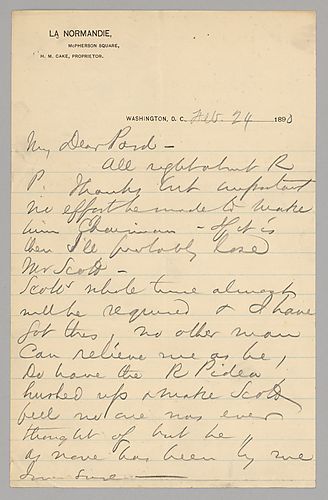 LA NORMANDIE,
McPHERSON SQUARE,
H. M. CAKE, PROPRIETOR.
WASHINGTON, D. C. Feb. 24 1890
My Dear Pond –
All right about R
P. Thanks but important
no effort be made to make
him Chairman – If it is
then I'll probably lose
Mr Scott –
Scotts whole time almost
will be required & I have
got this, no other man
Can relieve me as he,
Do have the R P idea
hushed up & make Scott
feel no one was ever
thought of but he
as none has been by me
I am sure –